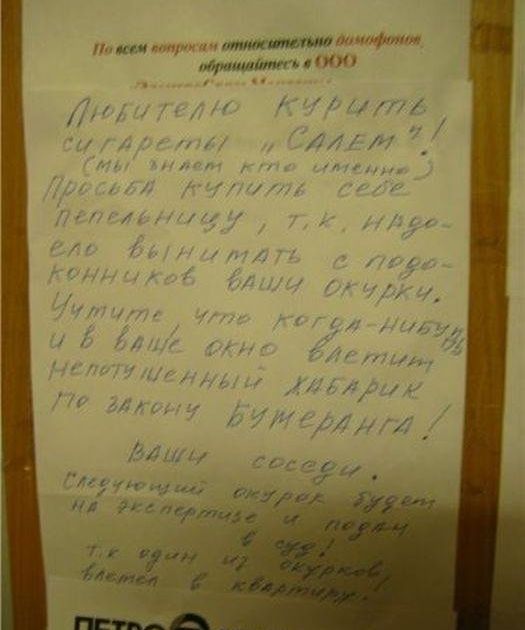 По всем вопросам относительно домофонов,
обращайтесь в ООО
Любителю курить
сигареты „Салем"!
(мы знаем кто именно)
Просьба купить себе
пепельницу, т.к. надо-
ело вынимать с подо-
конников ваши окурки.
Учтите, что когда-нибудь
и в ваше окно влетит
непотушенный хабарик
по закону Бумеранга!
Ваши соседи.
Следующий окурок будет
на экспертизе и подан
в суд!
т.к один из окурков,
влетел в квартиру!
ПЕТРО